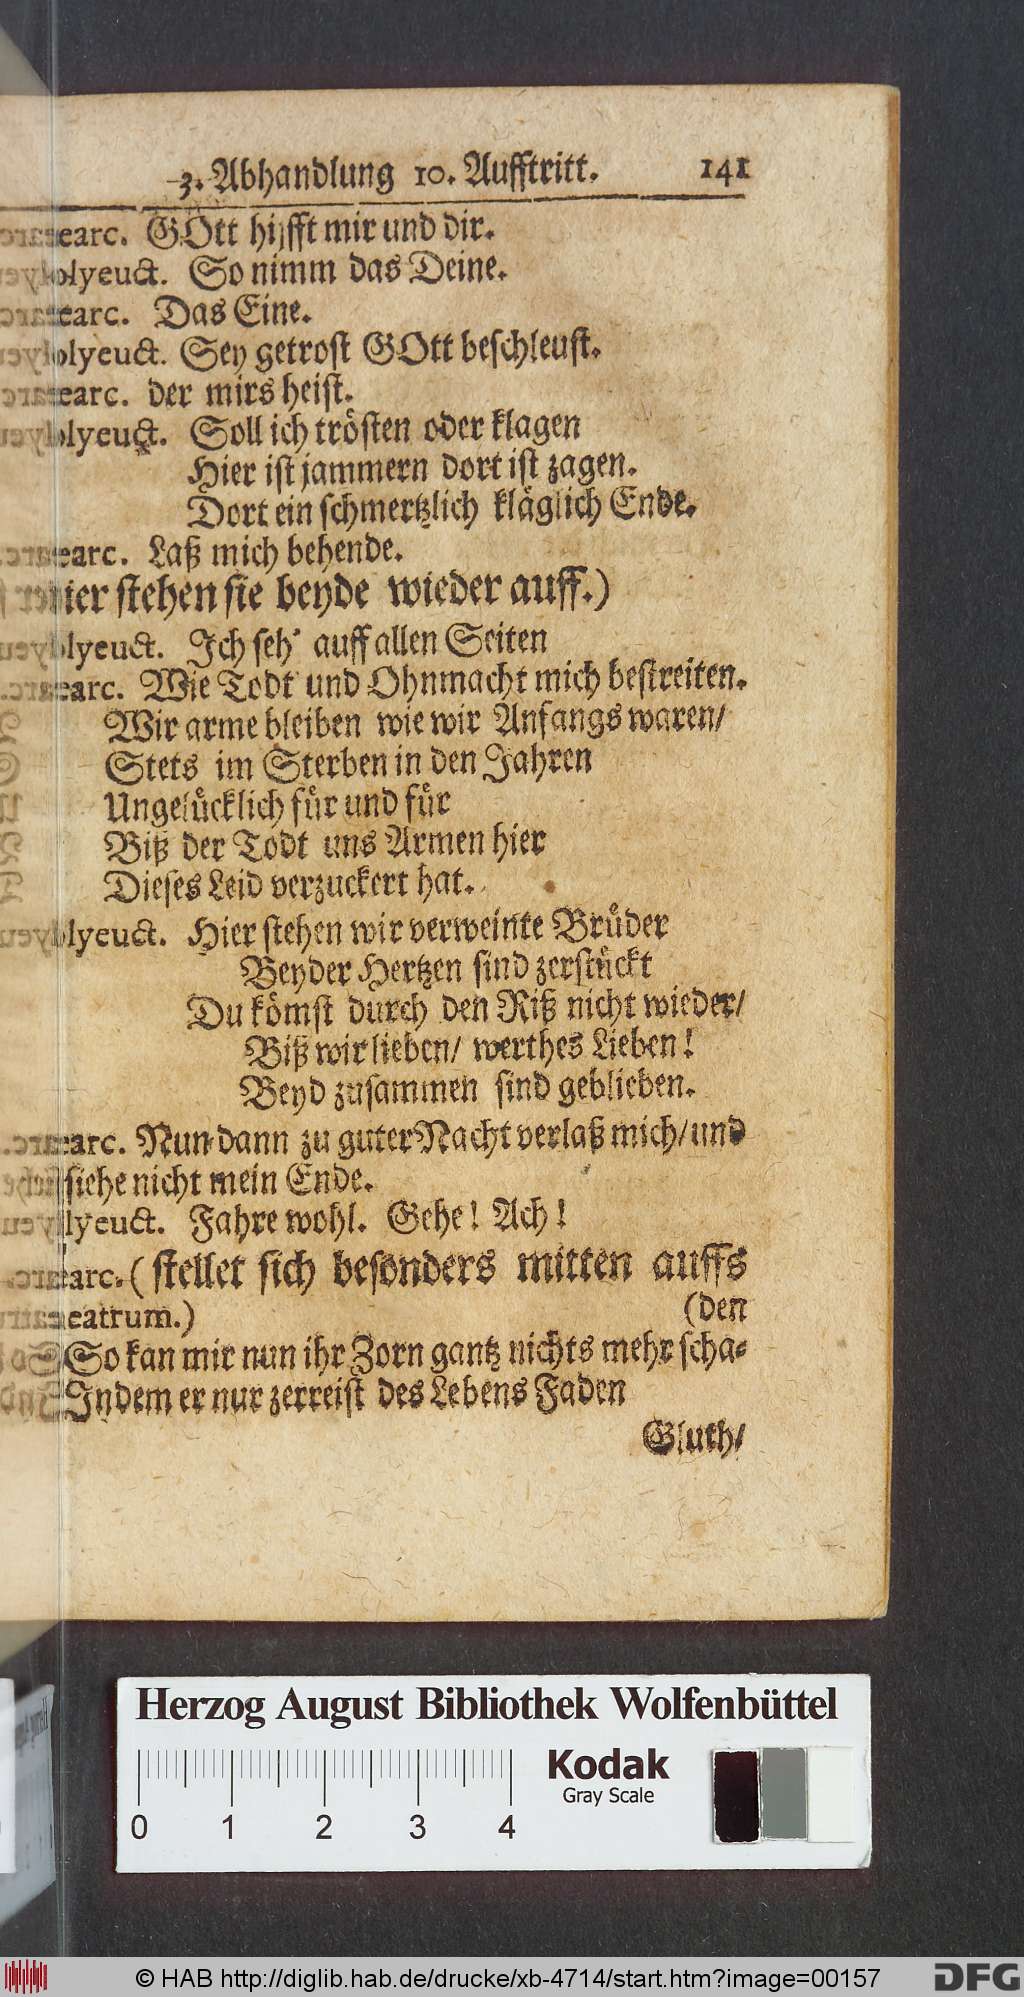 3. Abhandlung 10. Aufftritt. 141
earc. GOtt hilfft mir und dir.
olyeuct. So nimm das Deine.
earc. Das Eine.
olyeuct. Sey getrost GOtt beschleust.
earc. der mirs heist.
olyeuct. Soll ich trösten oder klagen
Hier ist jammern dort ist zagen.
Dort ein schmertzlich kläglich Ende.
earc. Laß mich behende.
ier stehen sie beyde wieder auff.)
lyeuct. Ich seh' auff allen Seiten
earc. Wie Todt und Ohnmacht mich bestreiten.
Wir arme bleiben wie wir Anfangs waren/
Stets im Sterben in den Jahren
Ungelücklich für und für
Biß der Todt uns Armen hier
Dieses Leid verzuckert hat.
lyeuct. Hier stehen wir verweinte Brüder
Beyder Hertzen sind zerstückt
Du kömst durch den Riß nicht wieder/
Biß wir lieben/ werthes Lieben!
Beyd zusammen sind geblieben.
earc. Nun dann zu guter Nacht verlaß mich/ und
siehe nicht mein Ende.
lyeuct. Fahre wohl. Gehe! Ach!
earc. (stellet sich besonders mitten auffs
eatrum.) (den
So kan mir nun ihr Zorn gantz nichts mehr scha-
Indem er nur zerreist des Lebens Faden
Gluth/
Herzog August Bibliothek Wolfenbüttel
Kodak
Gray Scale
0 1 2 3 4
© HAB http://diglib.hab.de/drucke/xb-4714/start.htm?image=00157 DFG